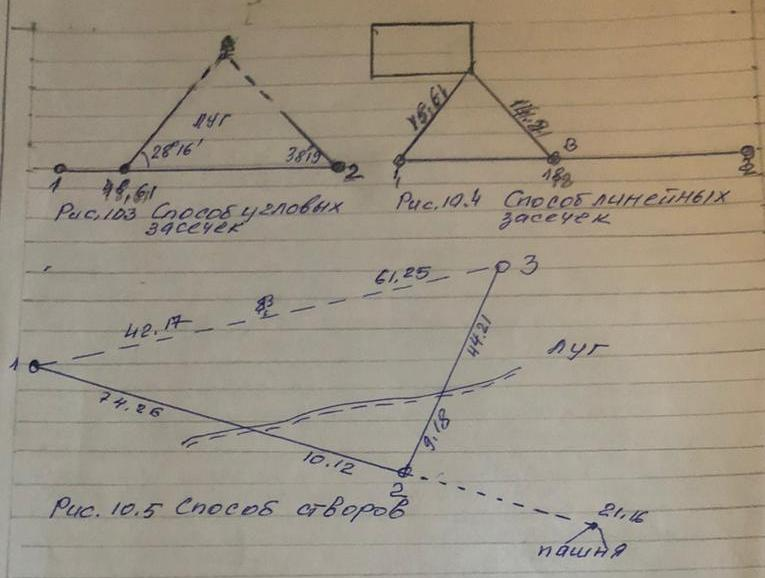 луг
28°16'
38°19
1
2
Рис.10.3 Способ угловых
засечек
15,61
В
1
2
Рис.10.4 Способ линейных
засечек
61.25
3
42.17
1
44.21
Луг
74.26
9.18
10.12
2
21.16
Рис. 10.5 Способ створов
пашня